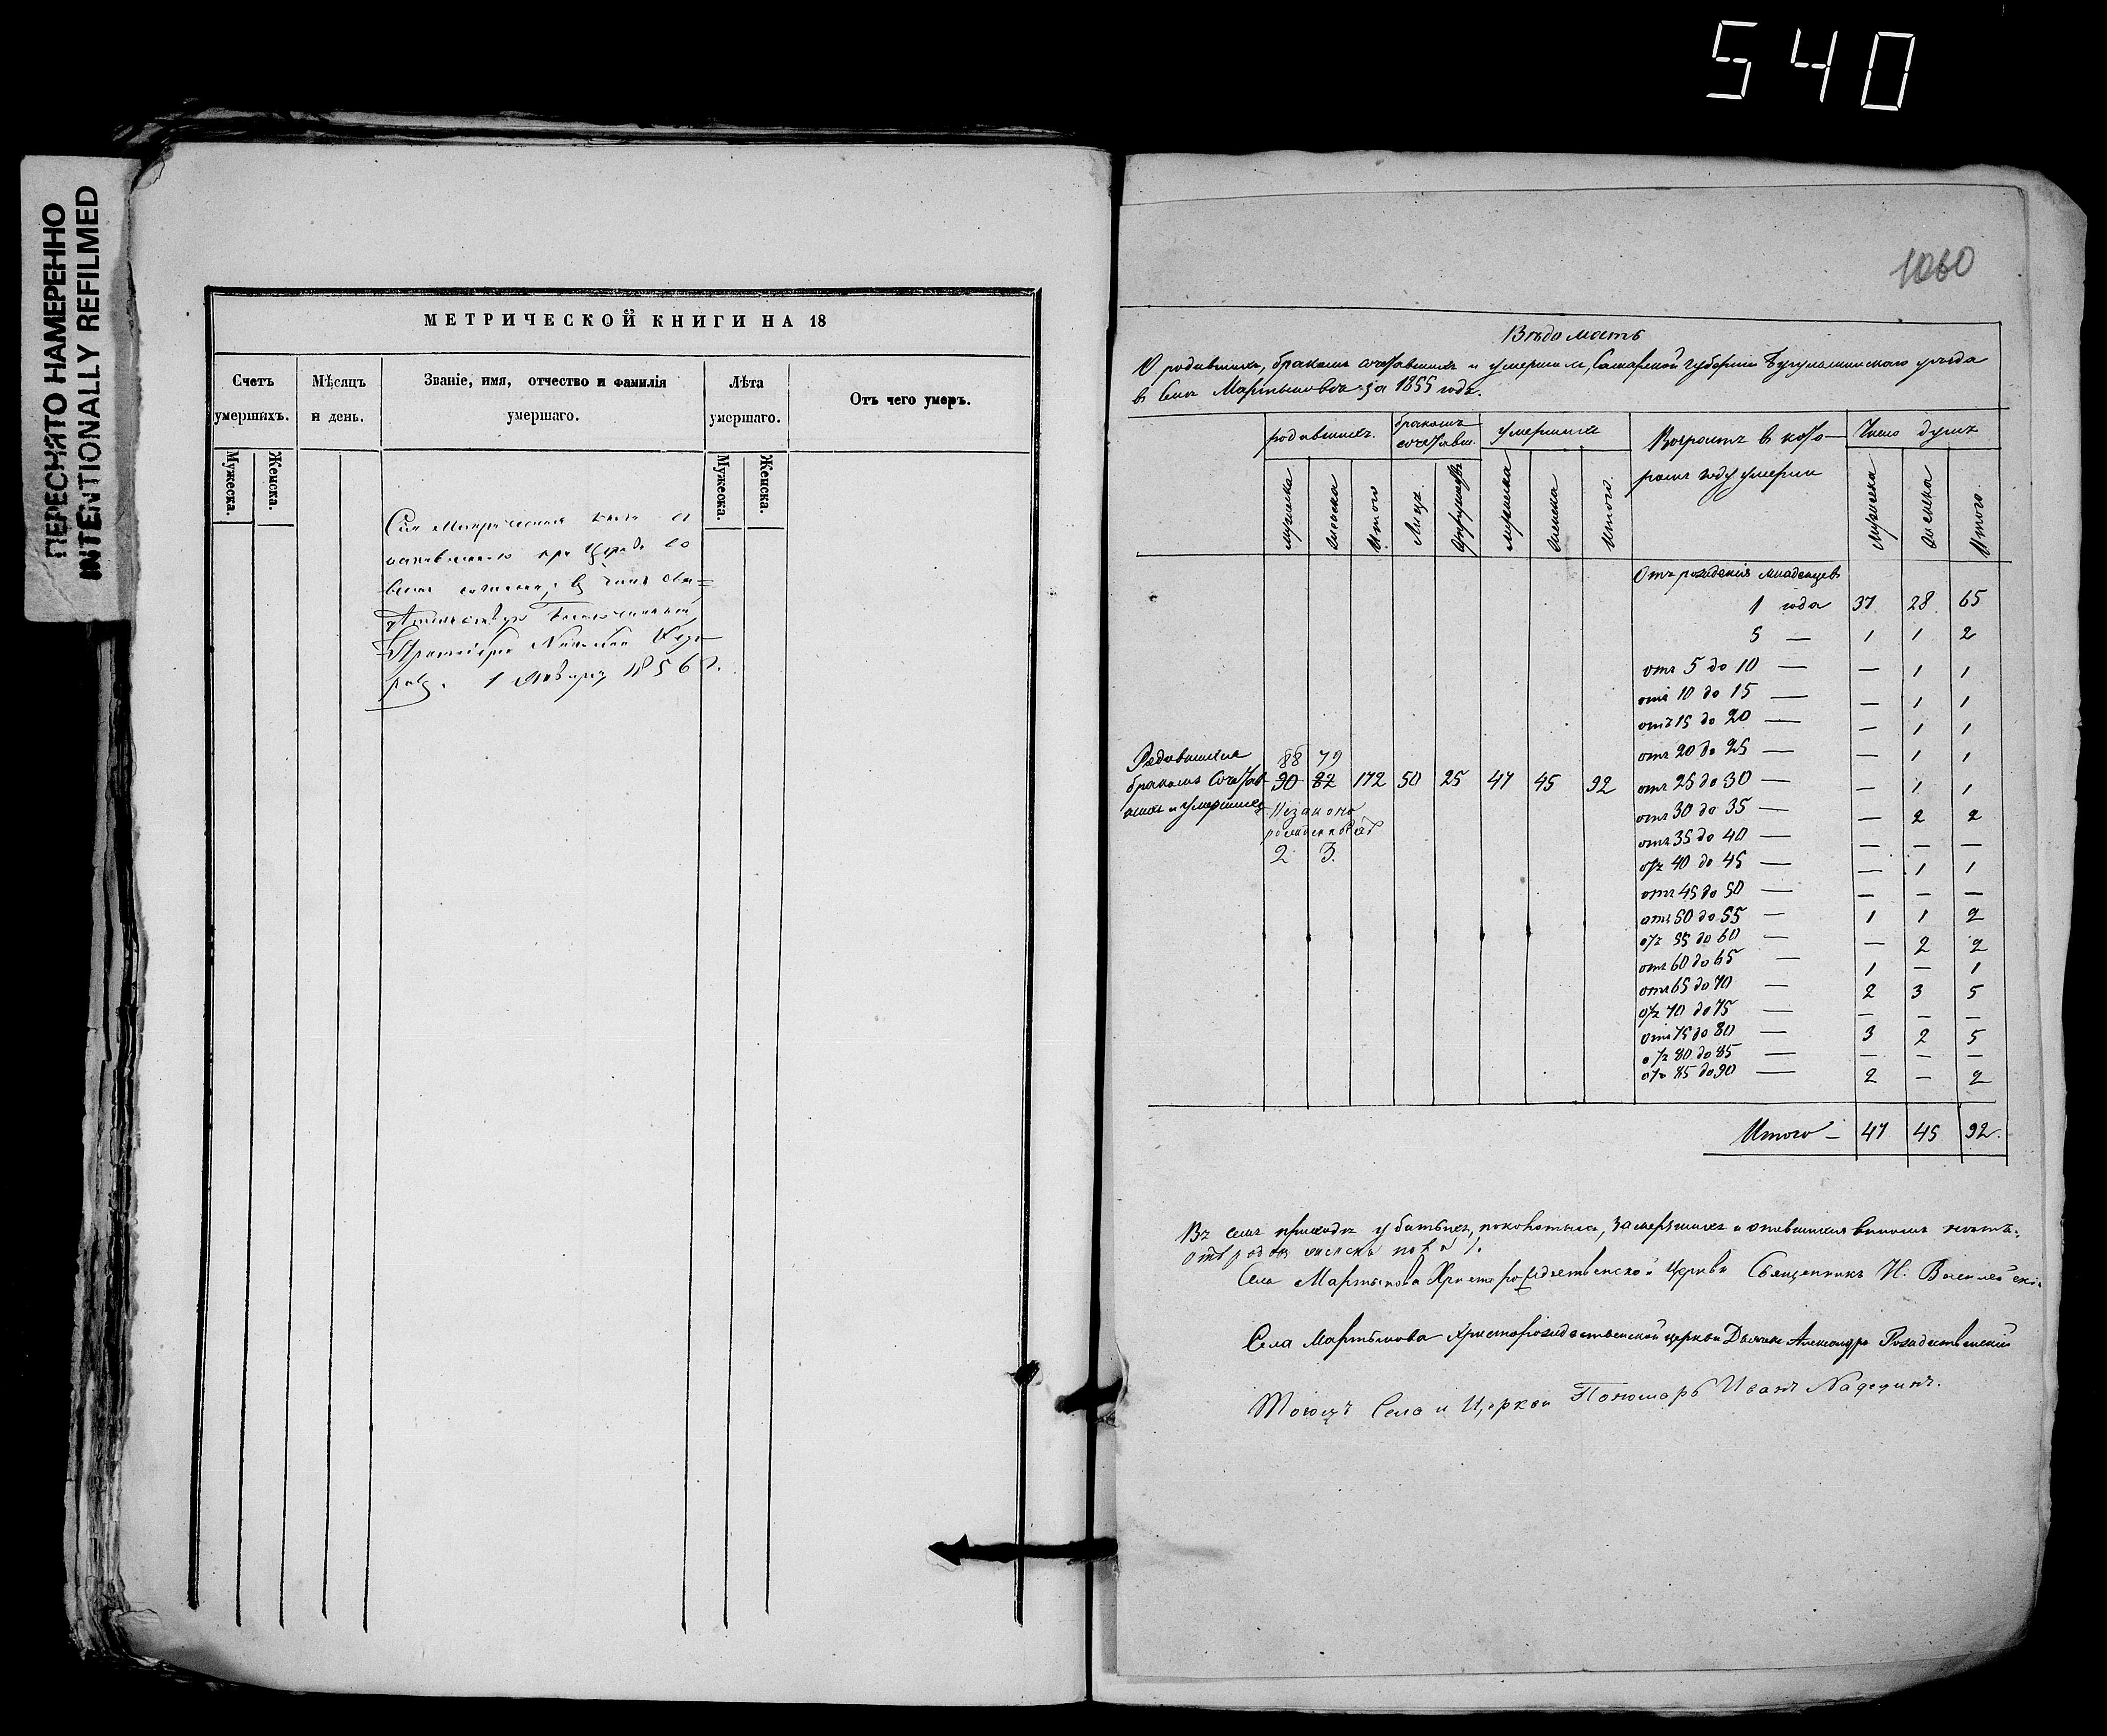 540
ПЕРЕСНЯТО НАМЕРЕННО
INTENTIONALLY REFILMED
МЕТРИЧЕСКОЙ КНИГИ НА 18
Счетъ умершихъ.
Мѣсяцъ и день.
Званіе, имя, отчество и фамилія умершаго.
Лѣта умершаго.
Отъ чего умеръ.
Мужеска.
Женска.
Мужеска.
Женска.
Сія Метрическая
при
1 Января 1856 г.
1060
Вѣдомость
О родившихъ, бракомъ сочетавшихся и умершихъ, Самарской губерніи Бугульминского уѣзда
в селѣ Мартыновкѣ за 1855 годъ.
родившихъ.
бракомъ сочетавш.
умершихъ
Возрастъ в кото-
ромъ году умерли
Число душъ
мужеска
женска
Итого
Лицъ.
Супружествъ
мужеска
женска
Итого.
мужеска
женска
Итого.
Отъ рожденія младенцевъ
1 года 37 28 65
5 — 1 1 2
отъ 5 до 10 — — 1 1
отъ 10 до 15 — — 1 1
отъ 15 до 20 — — 1 1
отъ 20 до 25 — — 1 1
отъ 25 до 30 — — 1 1
отъ 30 до 35 — — 2 2
отъ 35 до 40 — — — —
отъ 40 до 45 — — 1 1
отъ 45 до 50 — — — —
отъ 50 до 55 — 1 1 2
отъ 55 до 60 — — 2 2
отъ 60 до 65 — 1 — 1
отъ 65 до 70 — 2 3 5
отъ 70 до 75 — — — —
отъ 75 до 80 — 3 2 5
отъ 80 до 85 — — — —
отъ 85 до 90 — 2 — 2
Родившихся 88 79
бракомъ сочетав- 90 82 172 50 25 47 45 92
шихъ и умершихъ Незаконо
рожденныхъ
2 3.
Итого — 47 45 92.
Въ семъ приходѣ убитыхъ, замерзшихъ и опившихся виномъ нѣтъ.
Села Мартынова Христорождественской Церкви Священникъ И.
Села Мартынова Христорождественской церкви Дьячекъ Александръ Рождественскій
Тогожъ Села и Церкви Пономарь Иванъ